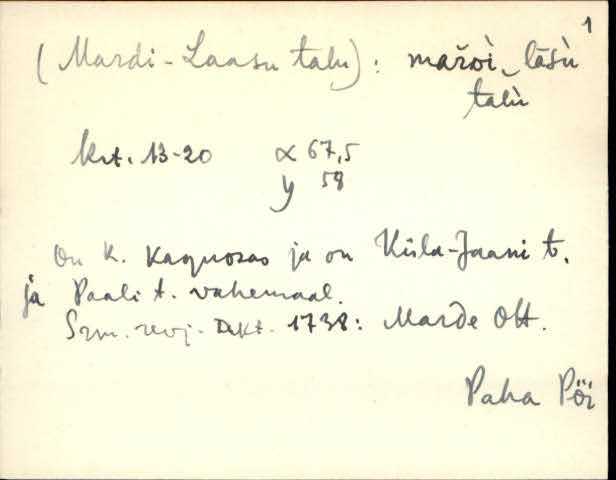 1
(Mardi-Laasu talu): maršì, lāsù
talù
krt. 13-20 x 67,5
y 58
On k. kagunosas ja on Küla-Jaani t.
ja Paali t. vahemaal.
Srm. revj. Dkt. 1738: Marde Ott.
Paha Pöi